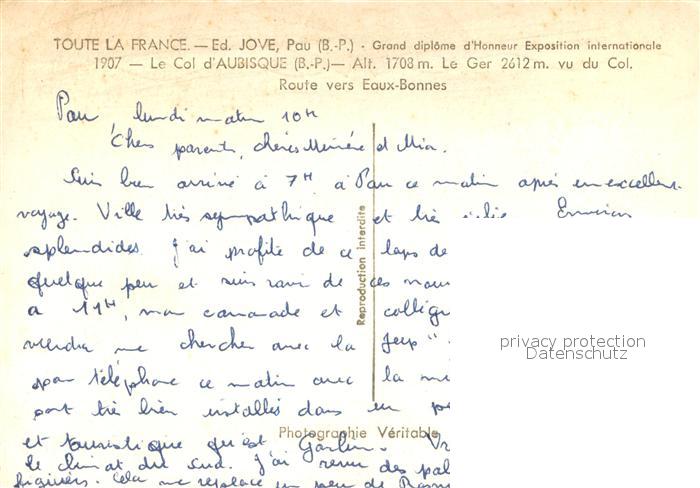 TOUTE LA FRANCE. — Ed. JOVE, Pau (B.-P.) - Grand diplôme d'Honneur Exposition internationale
1907 — Le Col d'AUBISQUE (B.-P.) — Alt. 1708 m. Le Ger 2612 m. vu du Col.
Route vers Eaux-Bonnes
Pau, lundi matin 10H
Chers parents, chères et
Suis bien arrivé à 7H à Pau ce matin après un excellent
voyage. Ville très sympathique et très jolie Environs
splendides. J'ai profité de ce laps de
quelque peu et suis ravi de ces
a 11H, mon camarade et
viendra me chercher avec la Jeep".
par téléphone ce matin avec la
sont très bien installés dans un
et touristique qu'est Garlin.
le climat du sud. J'ai revu des
figuiers. Cela me replace un peu de
Reproduction interdite
Photographie Véritable
privacy protection
Datenschutz